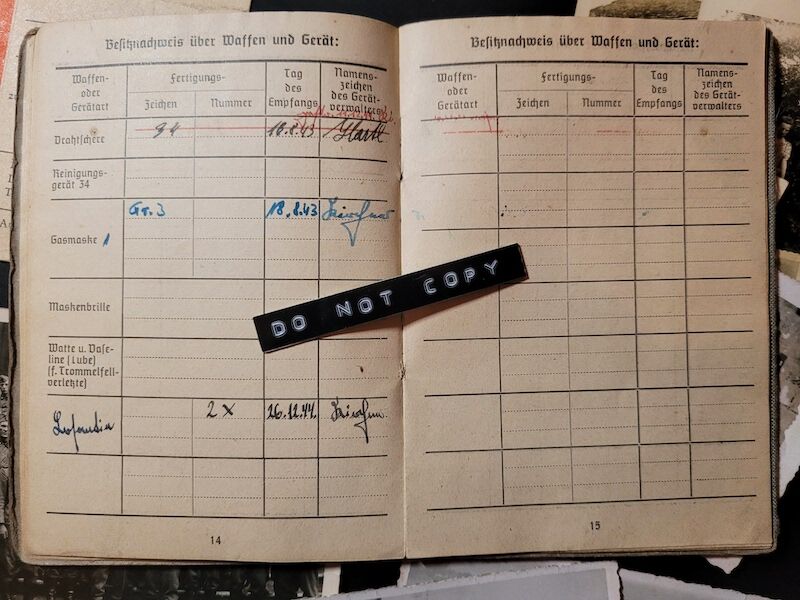 Besitznachweis über Waffen und Gerät:
Waffen- oder Gerätart
Fertigungs-
Zeichen
Nummer
Tag des Empfangs
Namens-zeichen des Gerät-verwalters
Drahtschere
94
18.8.43
Reinigungs-
gerät 34
Gasmaske 1
Gr. 3
18.8.43
Maskenbrille
Watte u. Vase-
line (Tube)
(f. Trommelfell-
verletzte)
Losantin
2 x
26.12.44.
14
DO NOT COPY
Besitznachweis über Waffen und Gerät:
Waffen- oder Gerätart
Fertigungs-
Zeichen
Nummer
Tag des Empfangs
Namens-zeichen des Gerät-verwalters
15